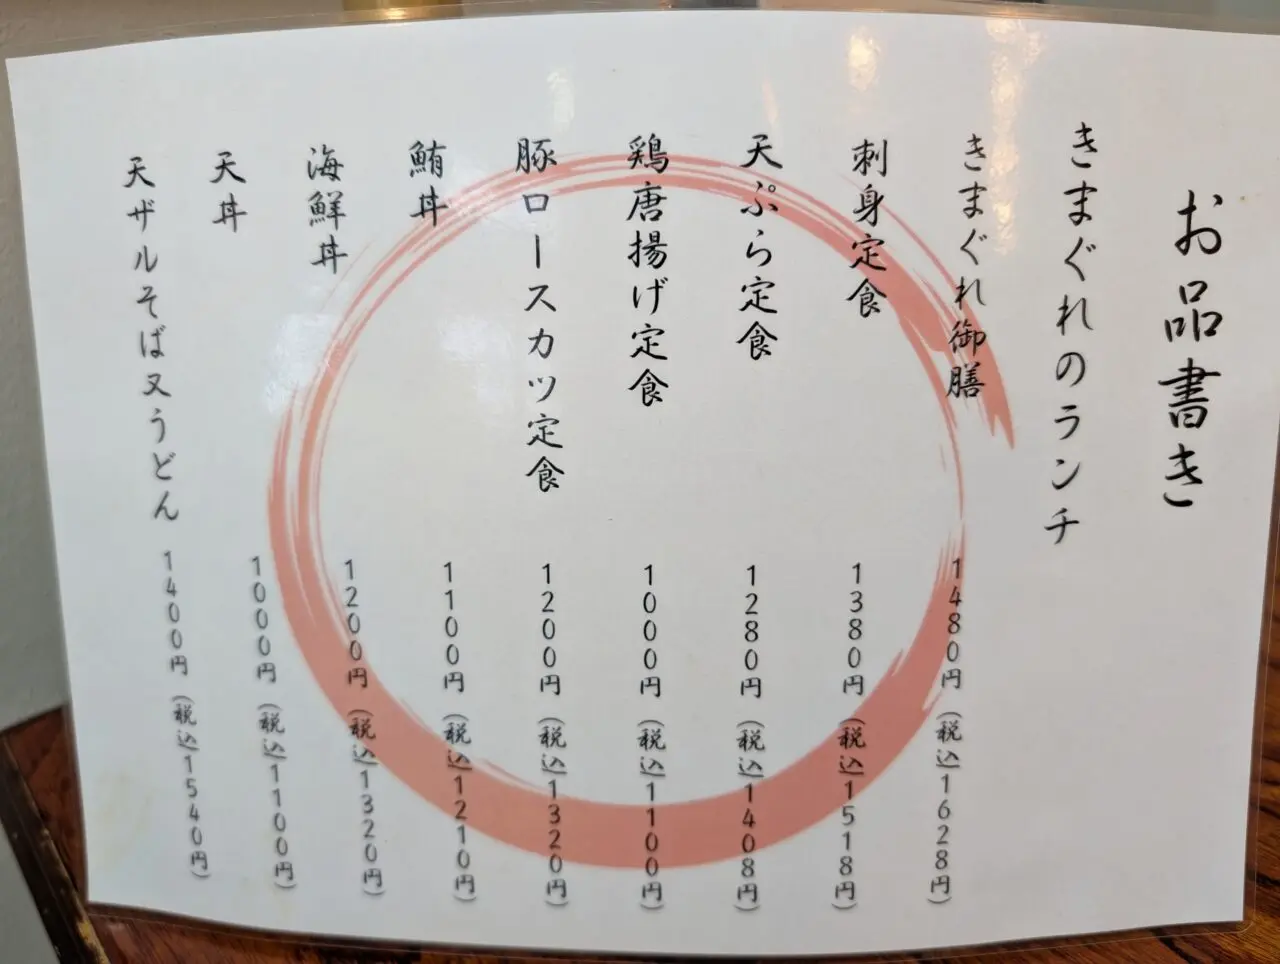 お品書き
きまぐれのランチ
きまぐれ御膳 1480円（税込1628円）
刺身定食 1380円（税込1518円）
天ぷら定食 1280円（税込1408円）
鶏唐揚げ定食 1000円（税込1100円）
豚ロースカツ定食 1200円（税込1320円）
鮪丼 1100円（税込1210円）
海鮮丼 1200円（税込1320円）
天丼 1000円（税込1100円）
天ザルそば又うどん 1400円（税込1540円）